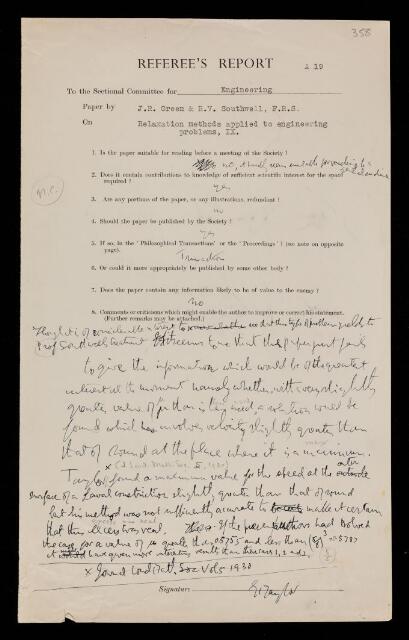 358
REFEREE'S REPORT
A 19
To the Sectional Committee for Engineering
Paper by J.R. Green & R.V. Southwell, F.R.S.
On Relaxation methods applied to engineering
problems, IX.
1. Is the paper suitable for reading before a meeting of the Society ?
no,
2. Does it contain contributions to knowledge of sufficient scientific interest for the space
required ?
yes
3. Are any portions of the paper, or any illustrations, redundant ?
no
4. Should the paper be published by the Society ?
yes
5. If so, in the 'Philosophical Transactions' or the 'Proceedings' ? (see note on opposite
page).
Transactions
6. Or could it more appropriately be published by some other body ?
7. Does the paper contain any information likely to be of value to the enemy ?
no
8. Comments or criticisms which might enable the author to improve or correct his statement.
(Further remarks may be attached.)
Though it is of considerable interest to that this type of problem yields to
Prof Southwell's treatment it seems to me that the paper just fails
to give the information which would be of the greatest
interest at the moment namely whether, with a very slightly
greater value of than is used, a solution will be
found which involves velocity slightly greater than
that of sound at the place where it is a maximum.
Taylor found a maximum value for the speed at the
surface of a Laval constriction slightly greater than that of sound
but his method was not sufficiently accurate to make it certain
that this excess was real. If the authors had solved
the case for a value of greater than .05755 and less than
it would have given more interesting result than their cases 1, 2 and
x Journ Lond Math. Soc Vol 5 1930
Signature: G.I. Taylor